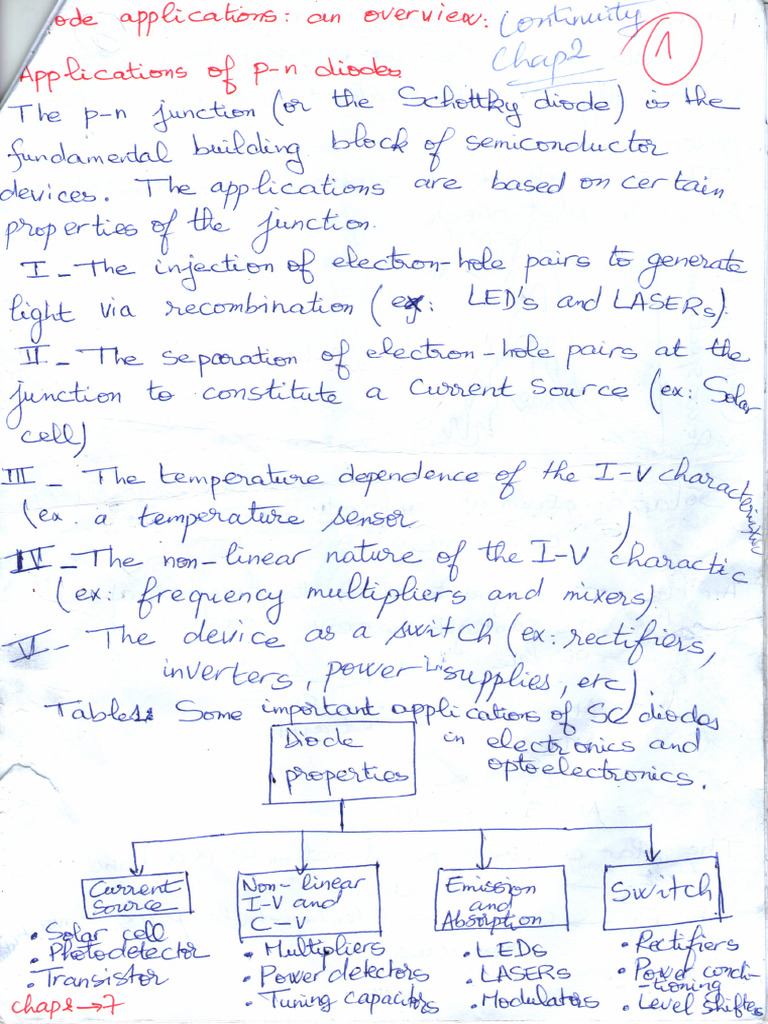 ode applications: an overview: Continuity
Chap2
1
Applications of p-n diodes
The p-n junction (or the Schottky diode) is the
fundamental building block of semiconductor
devices. The applications are based on certain
properties of the junction.
I - The injection of electron-hole pairs to generate
light via recombination (ex: LED's and LASERs).
II - The separation of electron-hole pairs at the
junction to constitute a current source (ex: Solar
cell)
III - The temperature dependence of the I-V characteristics
(ex. a temperature sensor)
IV - The non-linear nature of the I-V charactic
(ex: frequency multipliers and mixers).
V - The device as a switch (ex: rectifiers,
inverters, power supplies, etc).
Table1: Some important applications of SC diodes
in electronics and
optoelectronics.
Diode
properties
Current
Source
• Solar cell
• Photodetector
• Transistor
Non-linear
I-V and
C-V
• Multipliers
• Power detectors
• Tuning capacitors
Emission
and
Absorption
• LEDs
• LASERs
• Modulators
Switch
• Rectifiers
• Power condi-
tioning
• Level Shifters
chap2 → 7